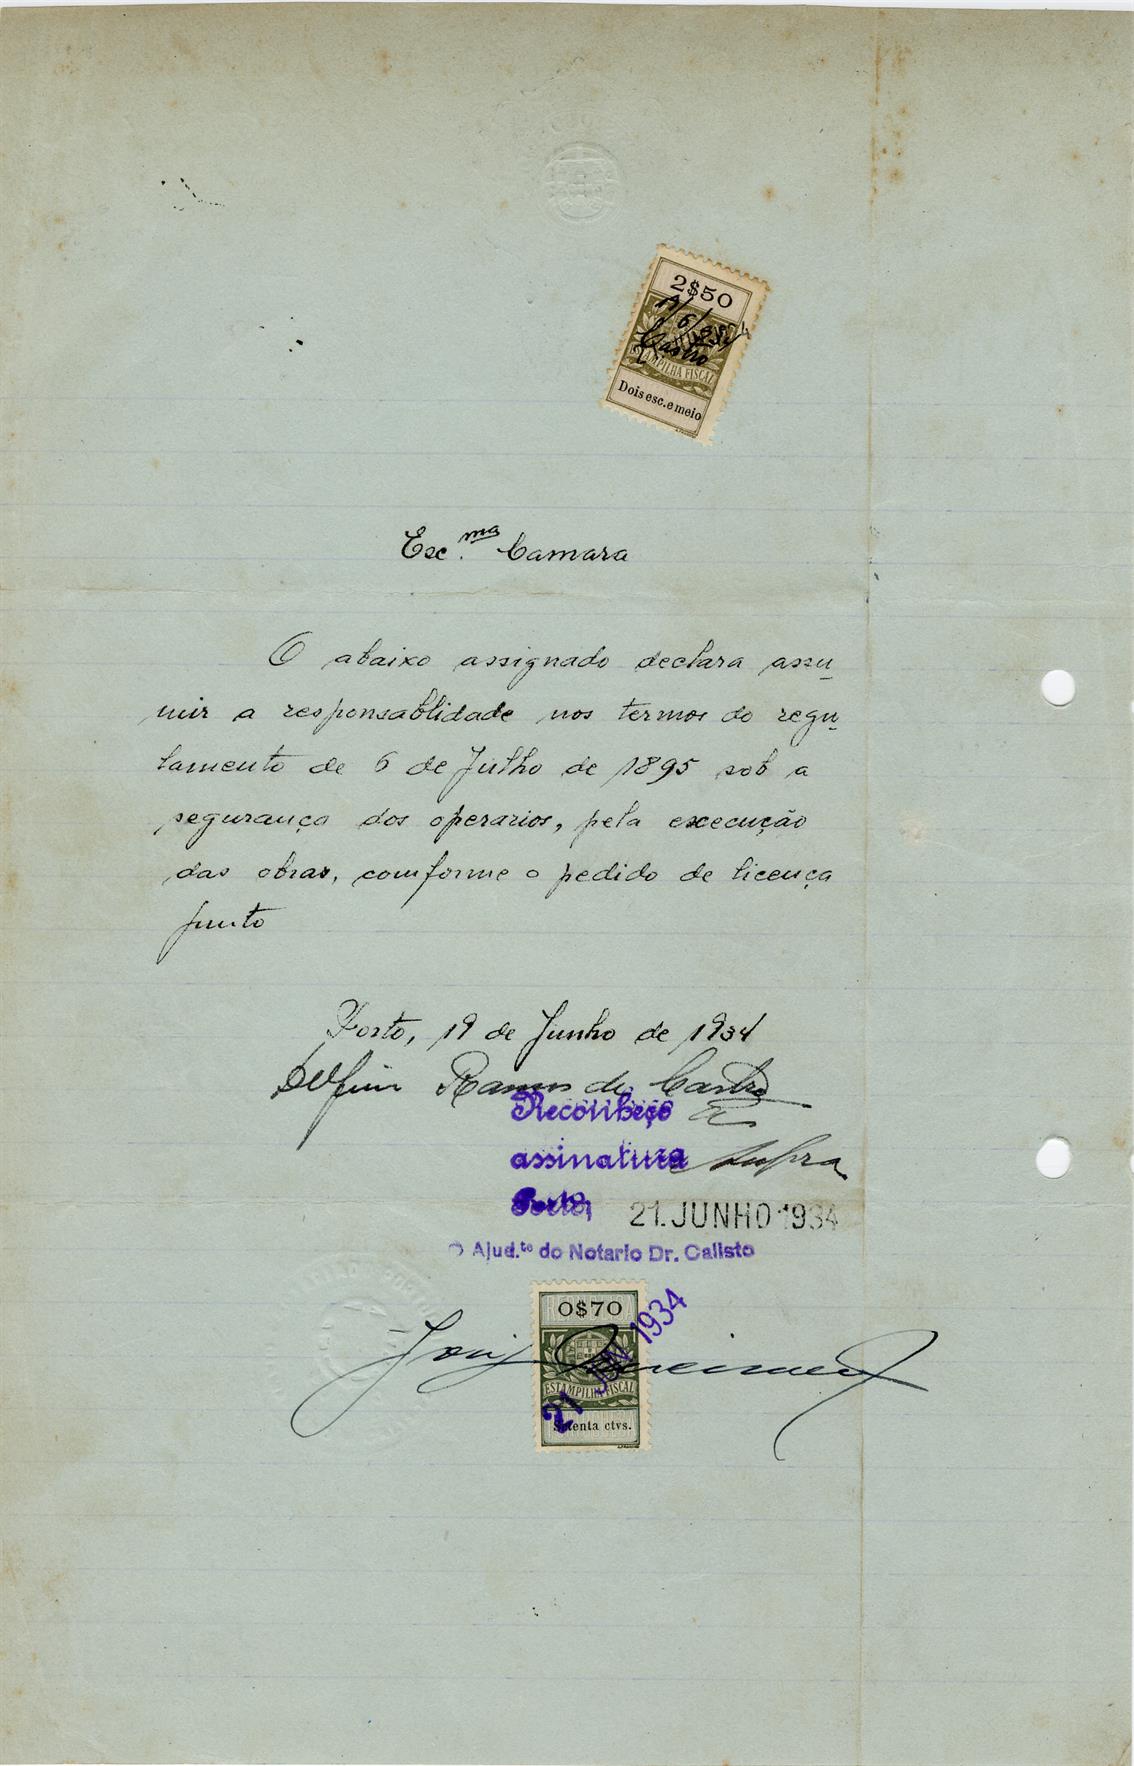 2$50
Castro
ESTAMPILHA FISCAL
Dois esc. e meio
Exc.ma Camara
O abaixo assignado declara assu-
mir a responsablidade nos termos do regu-
lamento de 6 de Julho de 1895 sob a
segurança dos operarios, pela execução
das obras, comforme o pedido de licença
junto
Porto, 19 de Junho de 1934
Delfim Ramos de Castro
Reconheço a
assinatura supra
Porto, 21. JUNHO 1934
O Ajud.te do Notario Dr. Calisto
0$70
21 JUN 1934
ESTAMPILHA FISCAL
Setenta ctvs.